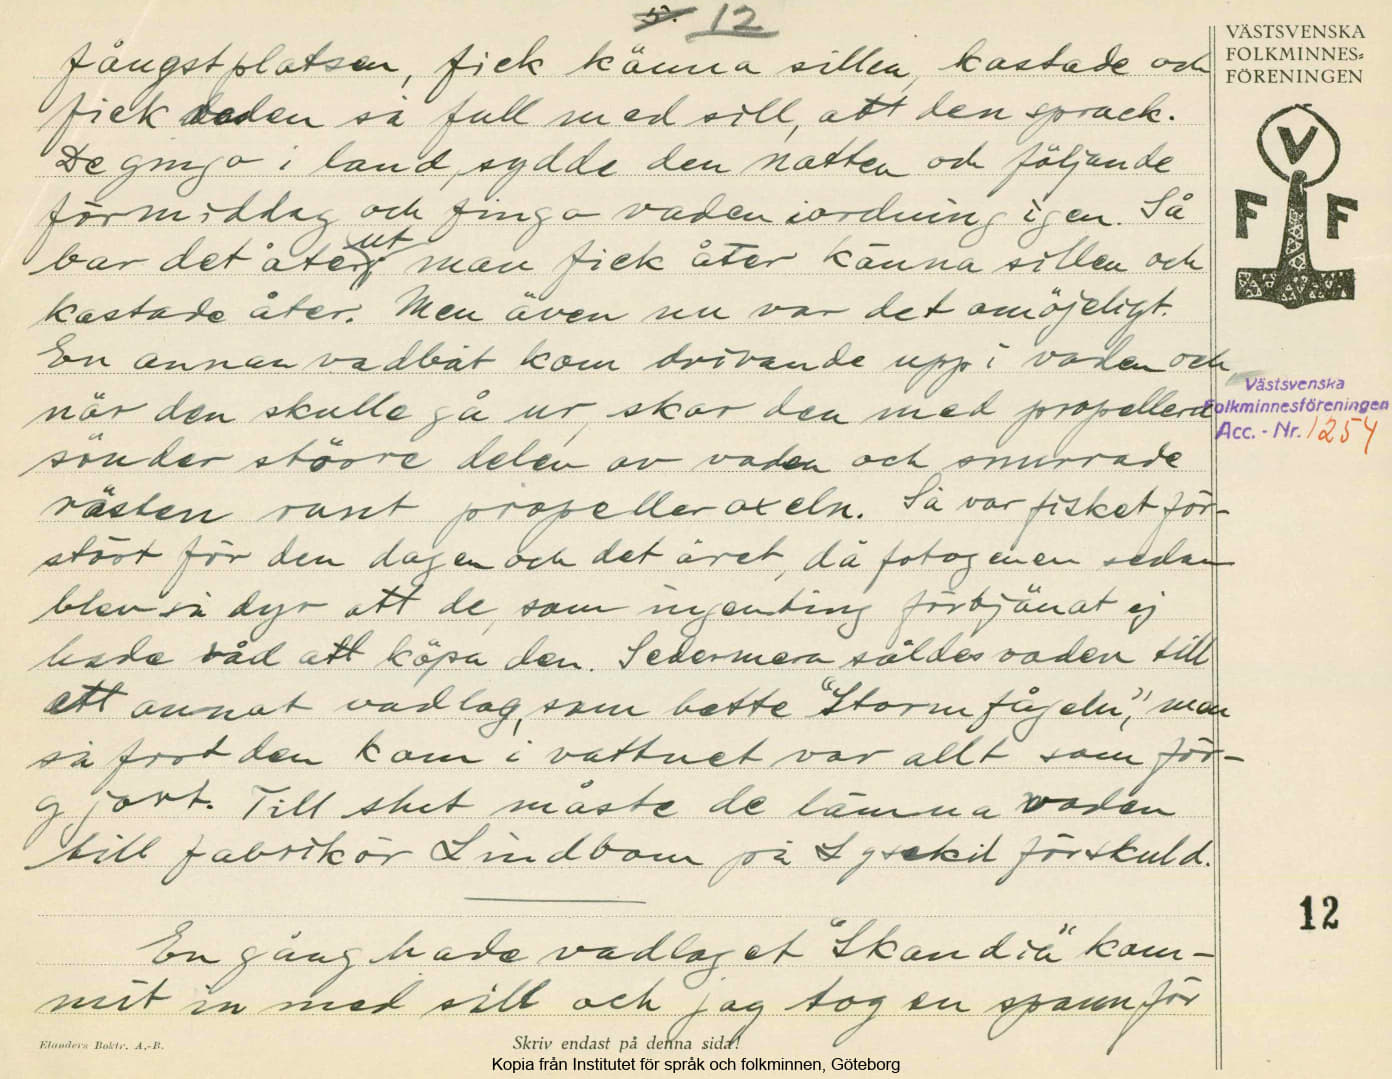 12
VÄSTSVENSKA
FOLKMINNES=
FÖRENINGEN
fångstplatsen, fick känna sillen, kastade och
fick vaden så full med sill, att den sprack.
De gingo i land, sydde den natten och följande
förmiddag och fingo vaden iordning igen. Så
bar det åter ut, man fick åter känna sillen och
kastade åter. Men även nu var det omöjeligt.
En annan vadbåt kom drivande upp i vaden och
när den skulle gå ur, skar den med propellern
sönder större delen av vaden och snurrade
resten runt propelleraxeln. Så var fisket för-
stört för den dagen och det året, då fotogenen sedan
blev så dyr att de, som ingenting förtjänat ej
hade råd att köpa den. Sedermera såldes vaden till
ett annat vadlag, som hette "Stormfågeln", men
så frot den kom i vattnet var allt som för-
gjort. Till slut måste de lämna vaden
till fabrikör Lindbom på Lysekil för skuld.
En gång hade vadlaget "Skandia" kom-
mit in med sill och jag tog en spann för
V
F F
Västsvenska
Folkminnesföreningen
Acc. - Nr. 1254
12
Elanders Boktr. A.-B.
Skriv endast på denna sida!
Kopia från Institutet för språk och folkminnen, Göteborg